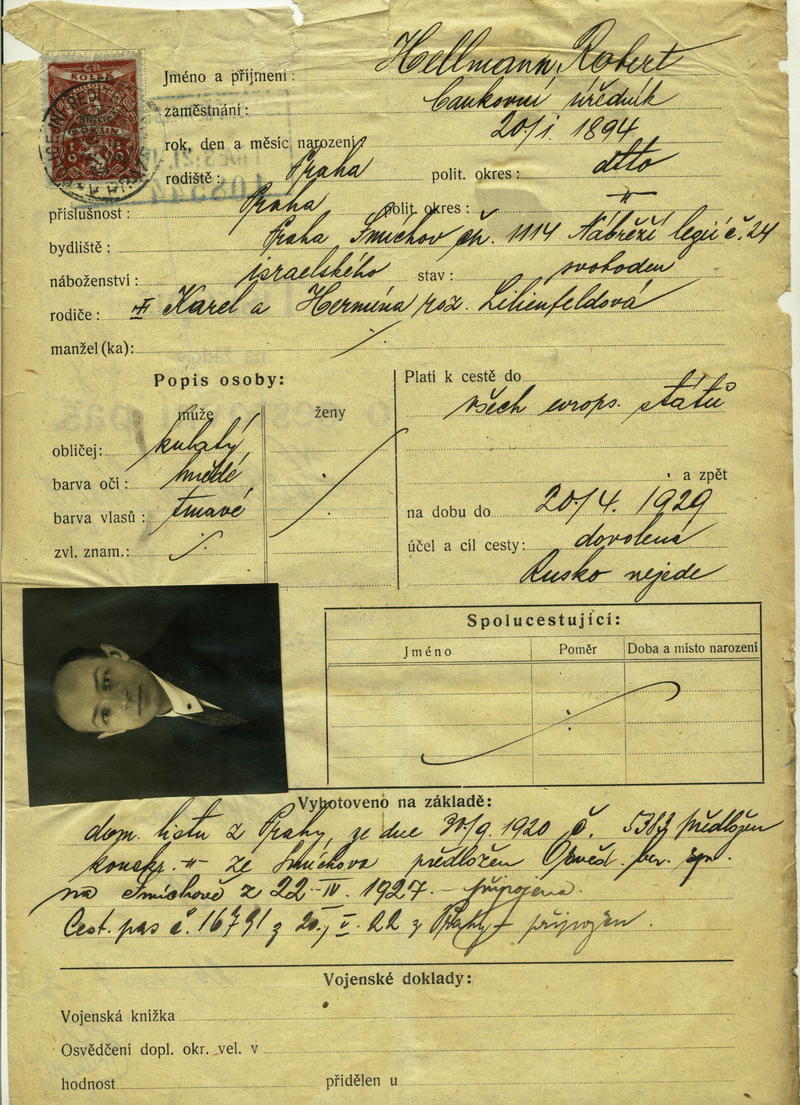 KOLEK
Jméno a příjmení: Hellmann Robert
zaměstnání: bankovní úředník
rok, den a měsíc narození 20/I. 1894
rodiště: Praha polit. okres: dtto
příslušnost: Praha polit. okres: "
bydliště: Praha Smíchov čp. 1114 Nábřeží legií č. 24
náboženství: israelského stav: svoboden
rodiče: Karel a Hermína roz. Lilienfeldová
manžel(ka):
Popis osoby:
muže ženy
obličej: kulatý
barva očí: hnědé
barva vlasů: tmavé
zvl. znam.:
Platí k cestě do
všech evrops. států
a zpět
na dobu do 20/4. 1929
účel a cíl cesty: dovolená
Rusko nejede
Spolucestující:
Jméno Poměr Doba a místo narození
Vyhotoveno na základě:
dom. listu z Prahy, ze dne 30/9. 1920 č. předložen
konskr. " ze Smíchova předložen Osvěd. ber. spr.
na Smíchově z 22-IV. 1927 - připojena.
Cest. pas č. 16791 z 20, V. 22 z Prahy - připojen.
Vojenské doklady:
Vojenská knížka
Osvědčení dopl. okr. vel. v
hodnost přidělen u